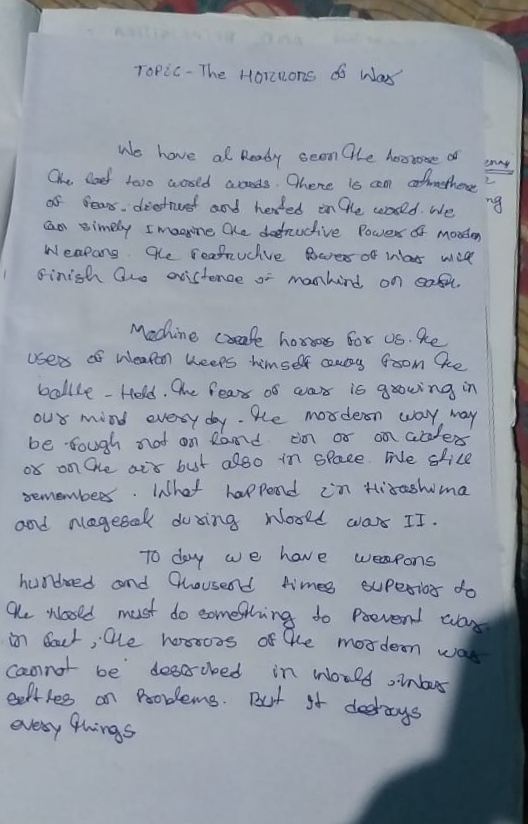 TOPIC - The HORRORS of War
We have al Ready seen the horrors of
the last two world wards. There is an athmsphere
of fear, distrust and herted in the world. We
can simely Imagine the destructive Power of morden
Weapons. the reatructive Power of War will
finish the existence of mankind on eath.
Machine create horros for us. the
uses of weapon keeps himself away from the
battle - Held. the fear of war is growing in
our mind every day. the mordern way may
be fough not on land in or on waters
or on the air but also in space. We still
remember. What happend in Hiroshima
and Nagesak during World war II.
To day we have weapons
hundred and thousend times superior to
the World must do something to Prevent war.
in fact, the horrors of the mordern war
cannot be described in World, War
settles on Problems. But it destroys
every things